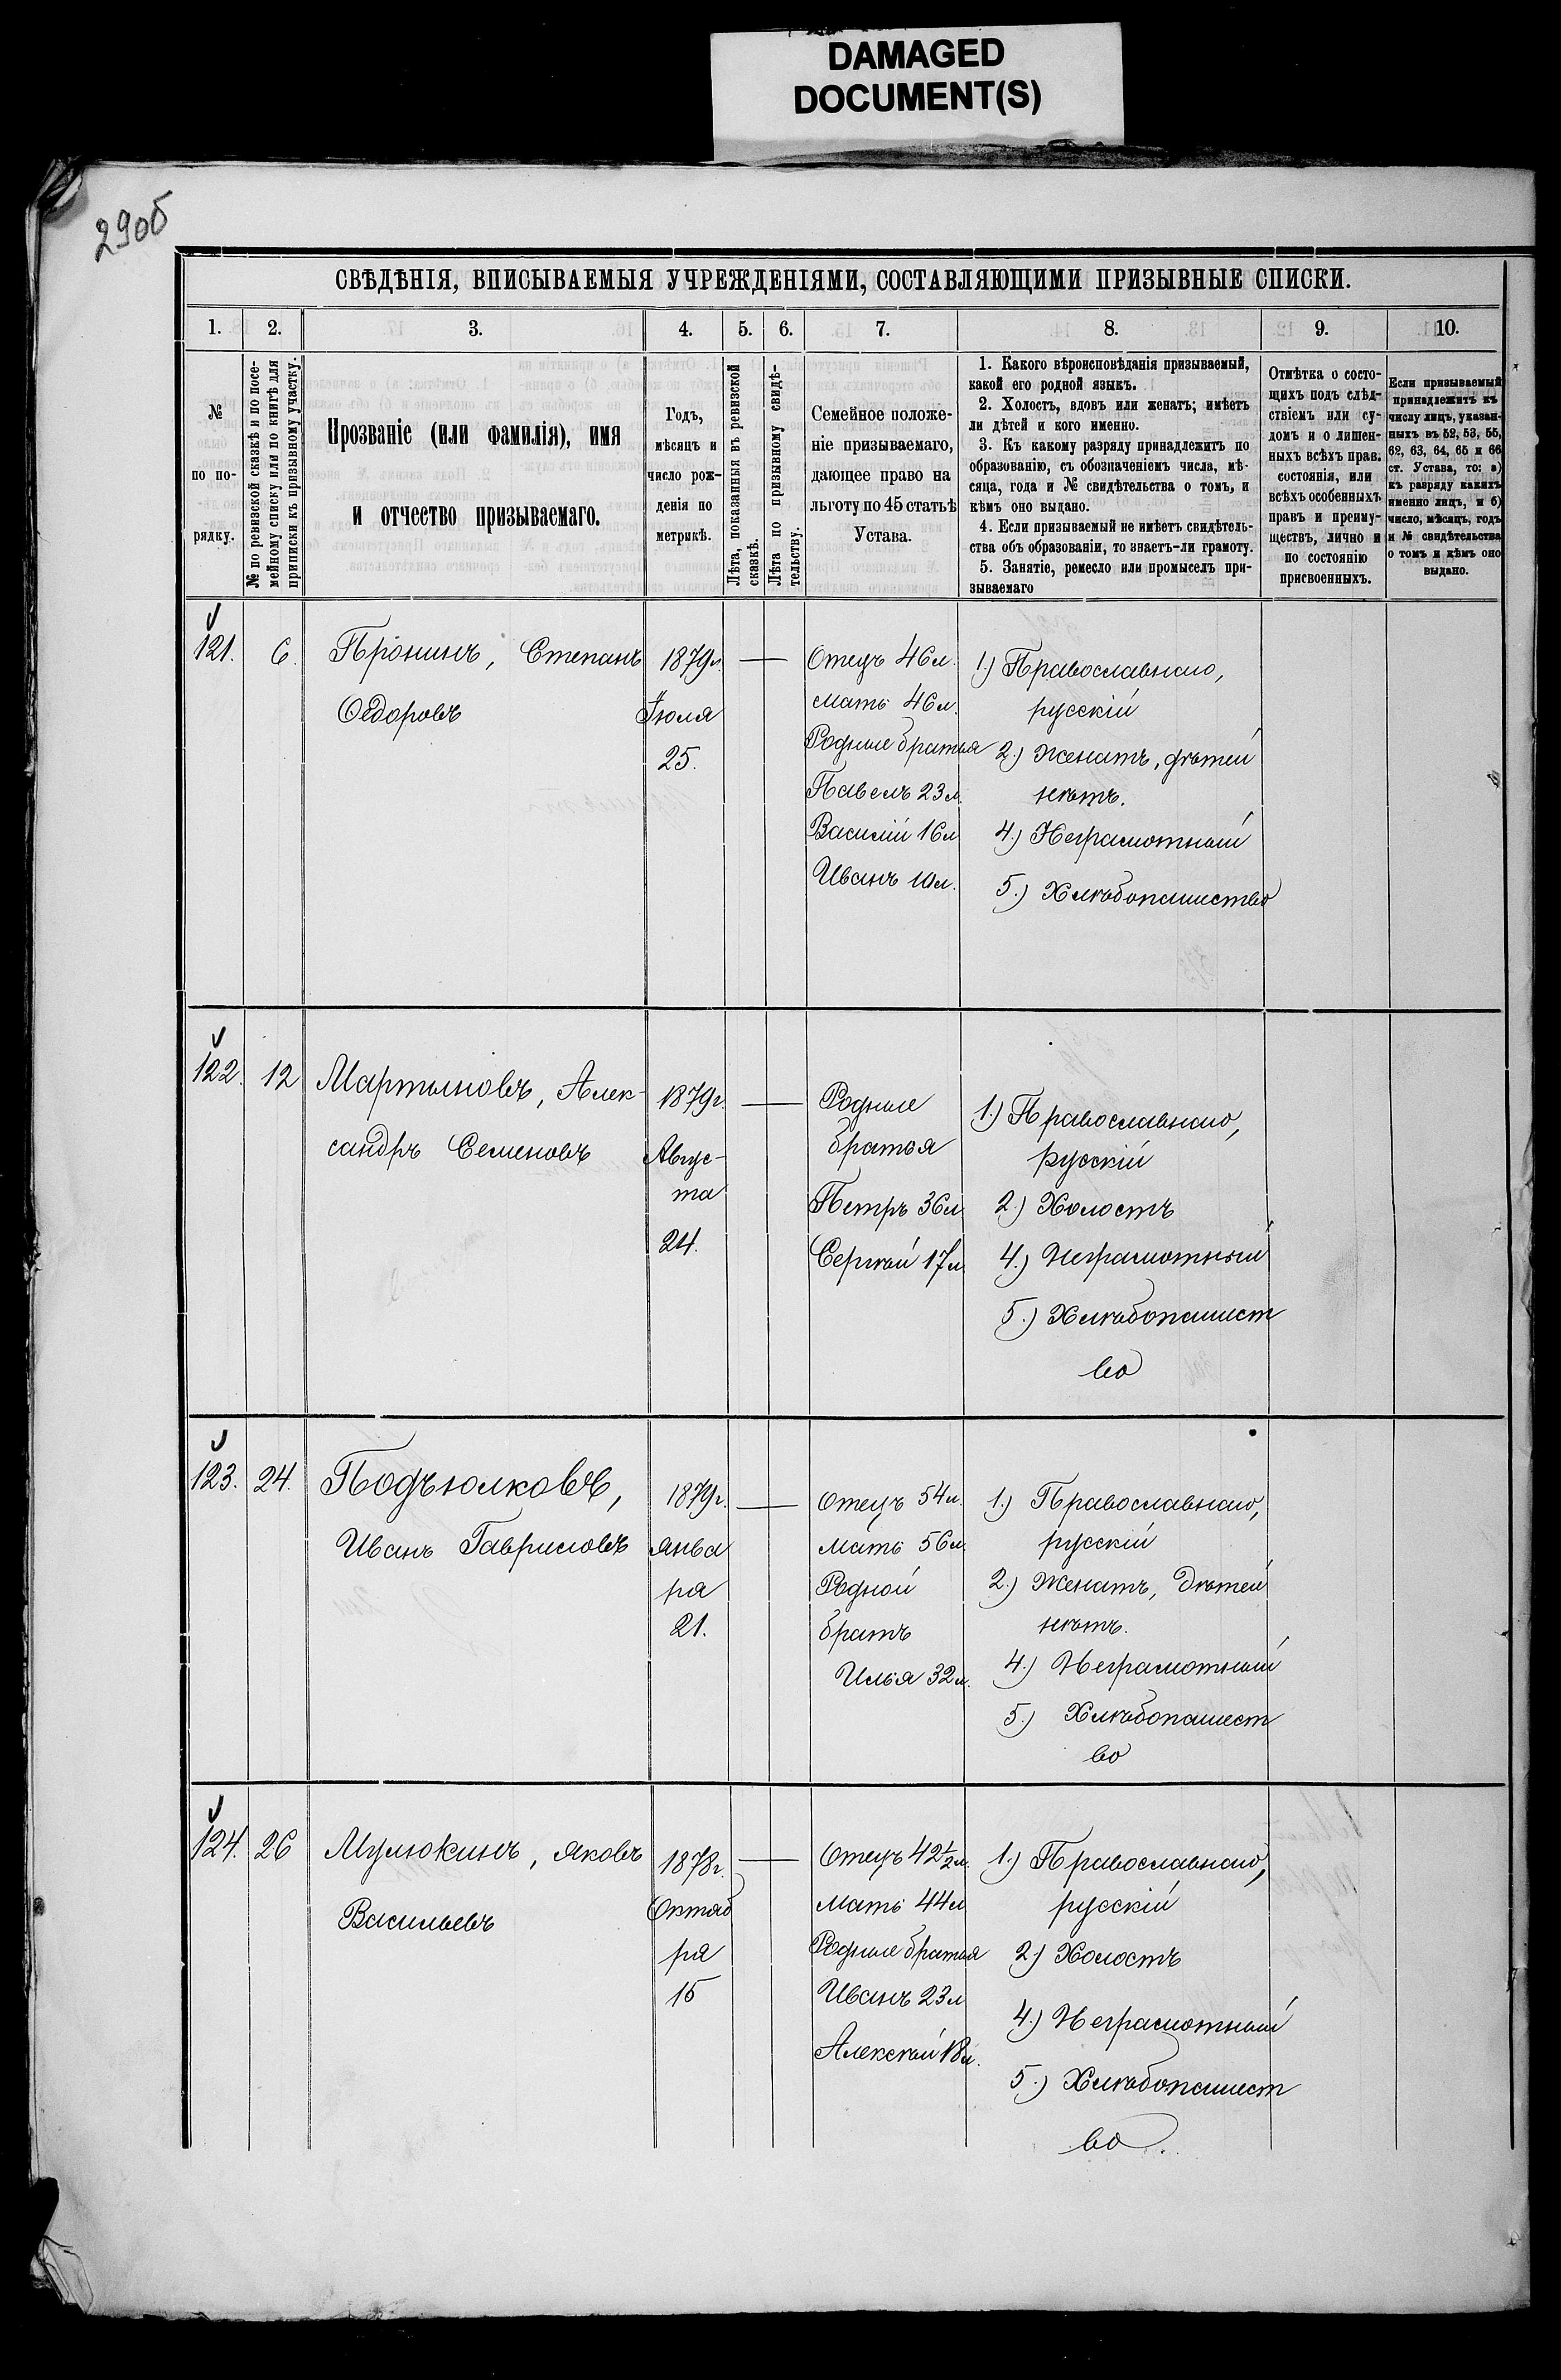 DAMAGED
DOCUMENT(S)
290б
СВѢДѢНІЯ, ВПИСЫВАЕМЫЯ УЧРЕЖДЕНІЯМИ, СОСТАВЛЯЮЩИМИ ПРИЗЫВНЫЕ СПИСКИ.
1. 2. 3. 4. 5. 6. 7. 8. 9. 10.
№
по по-
рядку.
№ по ревизской сказкѣ и по посе-
мейному списку или по книгѣ для
приписки къ призывному участку.
Прозваніе (или фамилія), имя
и отчество призываемаго.
Годъ,
мѣсяцъ и
число рож-
денія по
метрикѣ.
Лѣта, показанныя въ ревизской
сказкѣ.
Лѣта по призывному свидѣ-
тельству.
Семейное положе-
ніе призываемаго,
дающее право на
льготу по 45 статьѣ
Устава.
1. Какого вѣроисповѣданія призываемый,
какой его родной языкъ.
2. Холостъ, вдовъ или женатъ; имѣетъ
ли дѣтей и кого именно.
3. Къ какому разряду принадлежитъ по
образованію, съ обозначеніемъ числа, мѣ-
сяца, года и № свидѣтельства о томъ, и
кѣмъ оно выдано.
4. Если призываемый не имѣетъ свидѣтель-
ства объ образованіи, то знаетъ-ли грамоту.
5. Занятіе, ремесло или промыселъ при-
зываемаго
Отмѣтка о состо-
щихъ подъ слѣд-
ствіемъ или су-
домъ и о лишен-
ныхъ всѣхъ прав.
состоянія, или
всѣхъ особенныхъ
правъ и преиму-
ществъ, лично и
по состоянію
присвоенныхъ.
Если призываемый
принадлежитъ къ
числу лицъ, указан-
ныхъ въ 52, 53, 55,
62, 63, 64, 65 и 66
ст. Устава, то: а)
къ разряду какихъ
именно лицъ, и б)
число, мѣсяцъ, годъ
и № свидѣтельства
о томъ и кѣмъ оно
выдано.
121. 6. Пронинъ, Степанъ
Ѳедоровъ
1879г.
Іюля
25.
Отецъ 46л.
мать 46л.
Родные братья
Павелъ 23л.
Василій 16л
Иванъ 10л.
1.) Православнаго,
русскій
2.) Женатъ, дѣтей
нѣтъ.
4.) Неграмотный
5.) Хлѣбопашество
122. 12 Мартыновъ, Алек-
сандръ Семеновъ
1879г.
Авгус-
та
24.
Родные
братья
Петръ 36л
Сергѣй 17л
1.) Православнаго,
русскій
2.) Холостъ
4.) Неграмотный
5.) Хлѣбопашест
во
123. 24. Подъюлковъ,
Иванъ Гавриловъ
1879г.
Янва
ря
21.
Отецъ 54л.
мать 56л
Родной
братъ
Илья 32л.
1.) Православнаго,
русскій
2.) Женатъ, дѣтей
нѣтъ.
4.) Неграмотный
5.) Хлѣбопашест
во
124. 26 Мулюкинъ, Яковъ
Васильевъ
1878г.
Октяб
ря
15
Отецъ 42½л.
мать 44л
Родные братья
Иванъ 23л
Алексѣй 18л.
1.) Православнаго,
русскій
2.) Холостъ
4.) Неграмотный
5.) Хлѣбопашест
во.